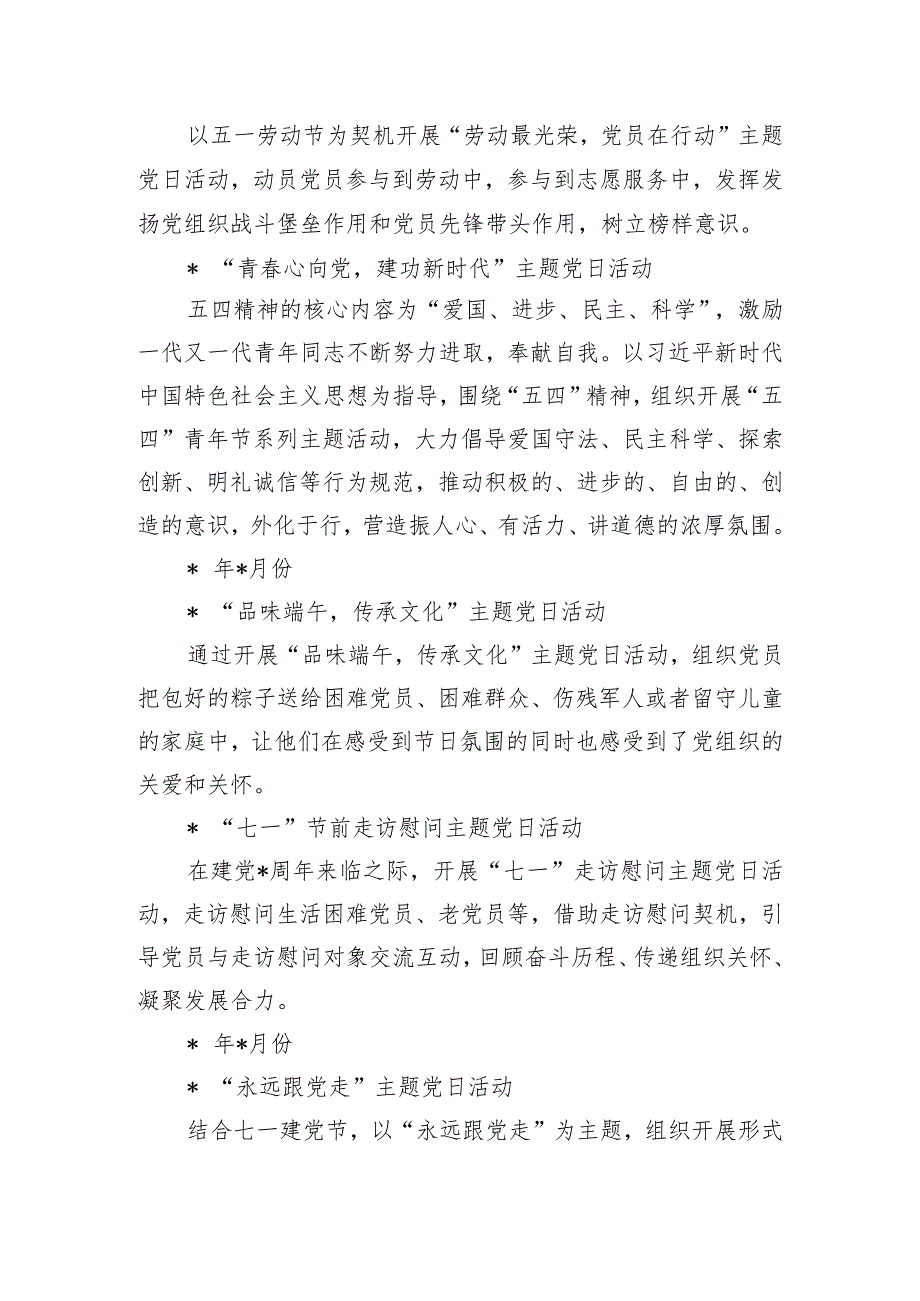 以五一劳动节为契机开展“劳动最光荣，党员在行动”主题
党日活动，动员党员参与到劳动中，参与到志愿服务中，发挥发
扬党组织战斗堡垒作用和党员先锋带头作用，树立榜样意识。
* “青春心向党，建功新时代”主题党日活动
五四精神的核心内容为“爱国、进步、民主、科学”，激励
一代又一代青年同志不断努力进取，奉献自我。以习近平新时代
中国特色社会主义思想为指导，围绕“五四”精神，组织开展“五
四”青年节系列主题活动，大力倡导爱国守法、民主科学、探索
创新、明礼诚信等行为规范，推动积极的、进步的、自由的、创
造的意识，外化于行，营造振人心、有活力、讲道德的浓厚氛围。
* 年*月份
* “品味端午，传承文化”主题党日活动
通过开展“品味端午，传承文化”主题党日活动，组织党员
把包好的粽子送给困难党员、困难群众、伤残军人或者留守儿童
的家庭中，让他们在感受到节日氛围的同时也感受到了党组织的
关爱和关怀。
* “七一”节前走访慰问主题党日活动
在建党*周年来临之际，开展“七一”走访慰问主题党日活
动，走访慰问生活困难党员、老党员等，借助走访慰问契机，引
导党员与走访慰问对象交流互动，回顾奋斗历程、传递组织关怀、
凝聚发展合力。
* 年*月份
* “永远跟党走”主题党日活动
结合七一建党节，以“永远跟党走”为主题，组织开展形式